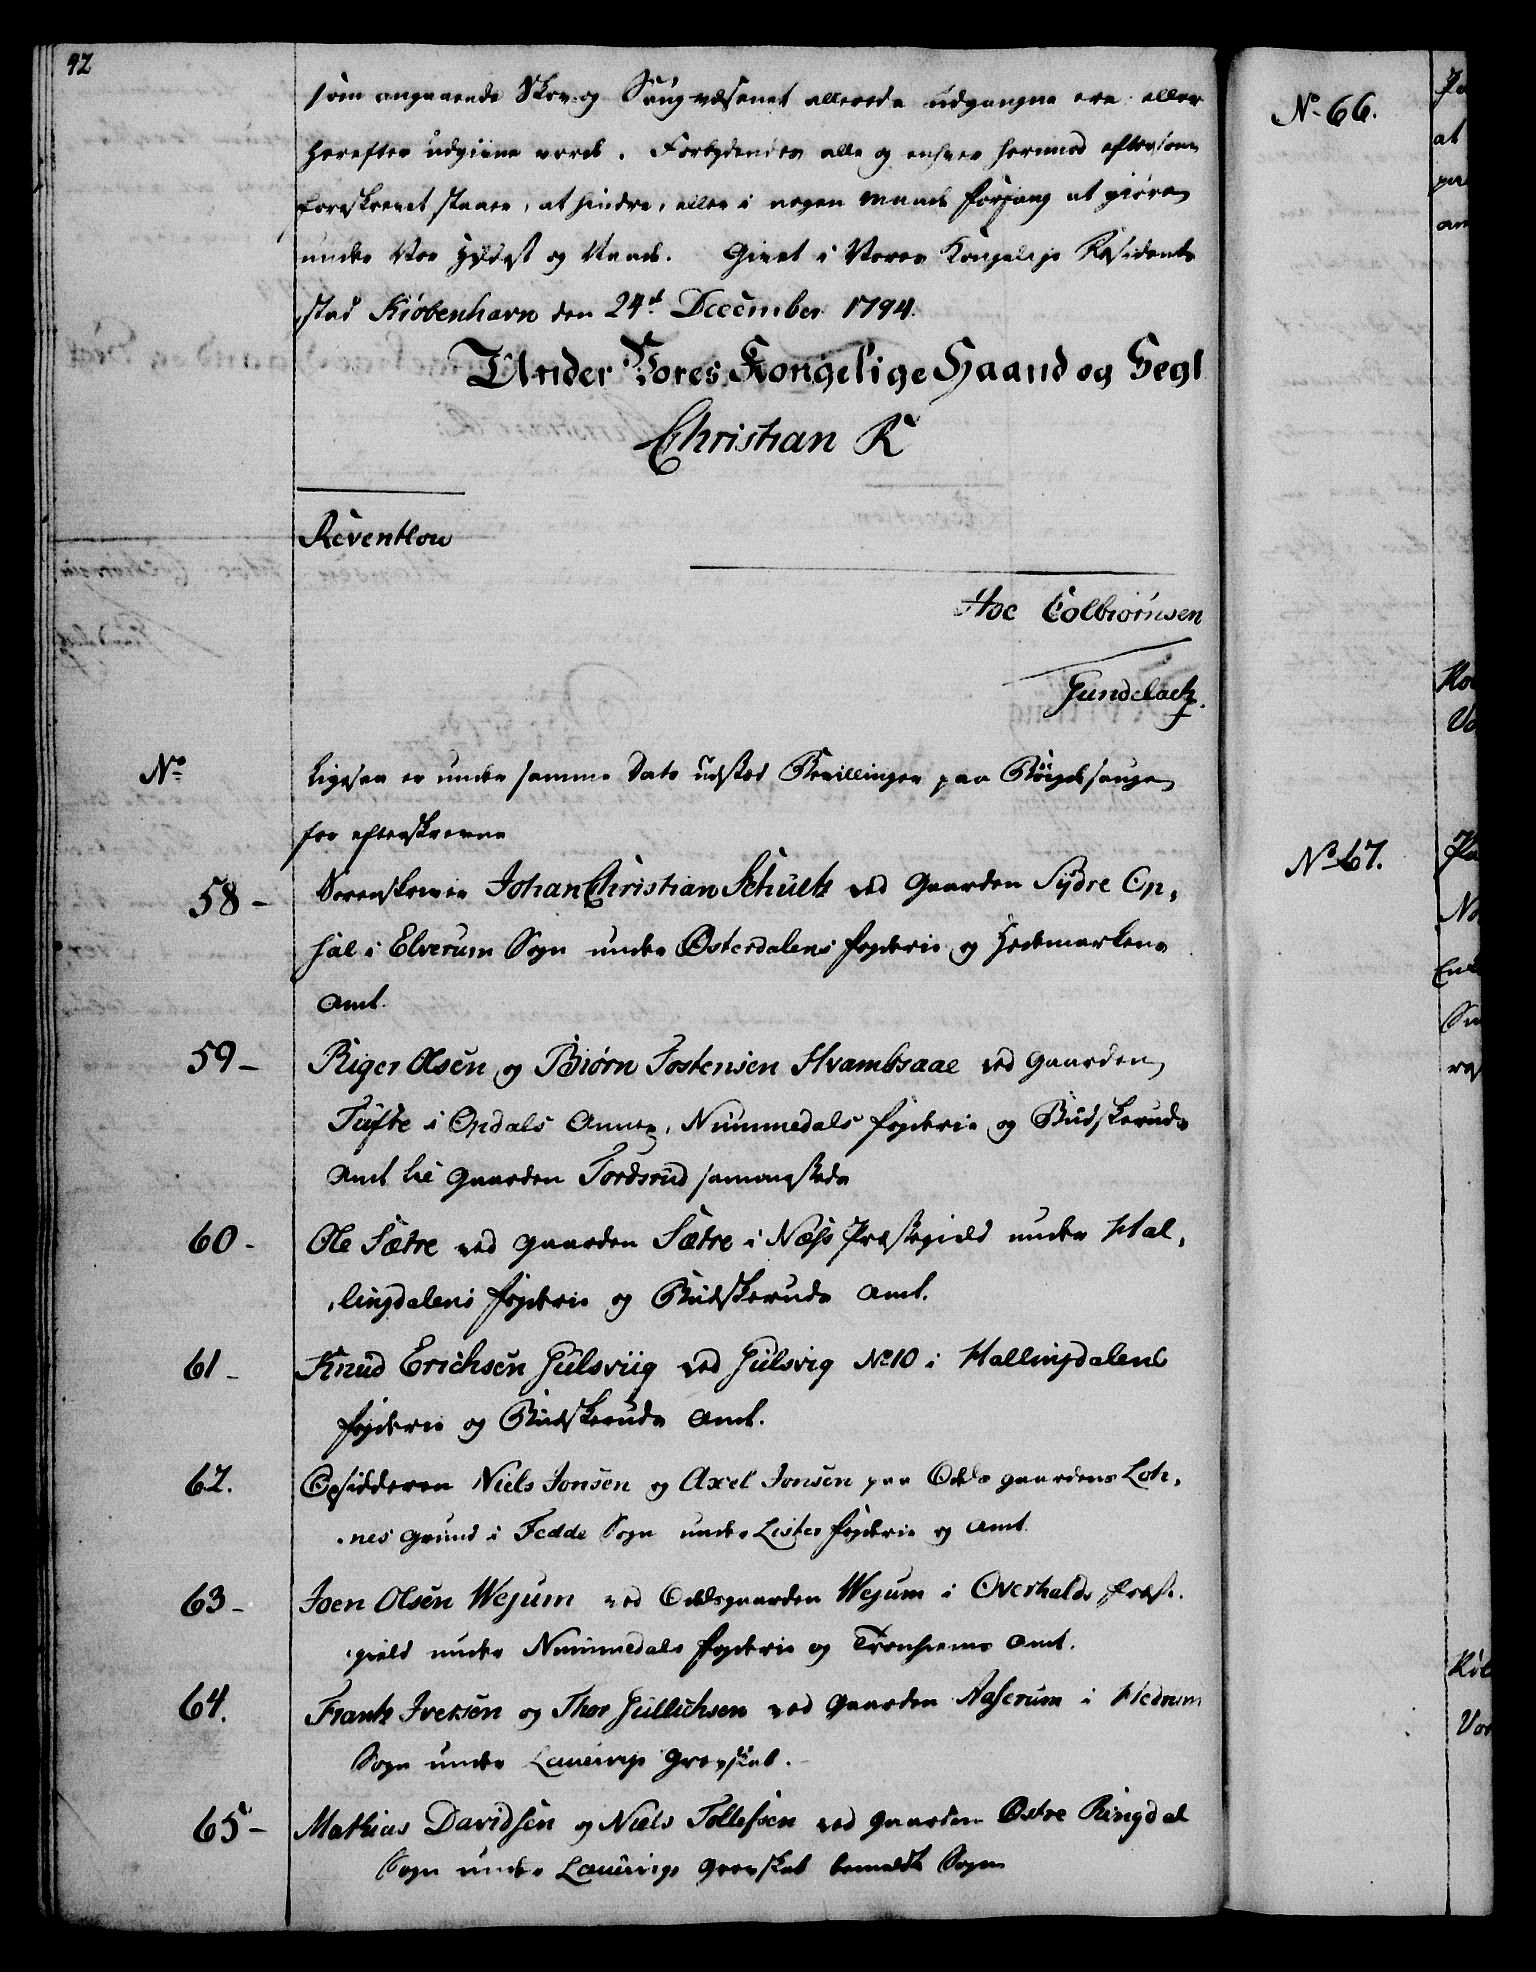 92
som angaaende Skov og Saug-væsenet allerede udgangne ere eller
herefter udgivne vorde. Forbydendes alle og enhver herimod eftersom
foreskrevet staaer, at hindre, eller i nogen maade forfang at giøre
under Vor Hyldest og Naade. Givet i Vores Kongelige Residents
stad Kiøbenhavn den 24d December 1794.
Under Vores Kongelige Haand og Segl
Christian R
Reventlou
Hoe Colbiørnsen
Gundelach.
No
Ligesaa er under samme Dato udstæd Bevillinger paa Bøigdesauge
for efterskrevne
58 - Sorenskriver Johan Christian Schultz ved Gaarden Sydre Op,
sal i Elverum Sogn under Østerdalens fogderie og Hedemarkens
Amt.
59 - Birger Olsen og Biørn Tostensen Hvambsaae ved Gaarden
Tufte i Opdals Annex, Nummedals fogderie og Budskeruds
Amt til Gaarden Tordsrud sammesteds
60 - Ole Sætre ved Gaarden Sætre i Næss Præstegield under Hal,
,lingdalens fogderie og Budskeruds Amt.
61 - Knud Erichsen Gulsviig ved Gulsvig No 10 i Hallingdalens
fogderie og Budskeruds Amt.
62. Opsidderen Niels Jonsen og Axel Jonsen paa Odels gaardens Loh,
,nes Grund i Fedde Sogn under Lister fogderie og Amt.
63 - Joen Olsen Wejum ved Odelsgaarden Wejum i Overhalds Præste,
,gield under Nummedals fogderie og Tronhiems Amt.
64. Frantz Iversen og Thor Gullichsen ved Gaarden Aaserum i Hedrum
Sogn under Laurvigs Grevskab.
65 - Mathias Davidsen og Niels Tollefsen ved Gaarden Østre Ringdal
Sogn under Laurvigs Grevskab bemeldte Sogn
No 66.
No 67.